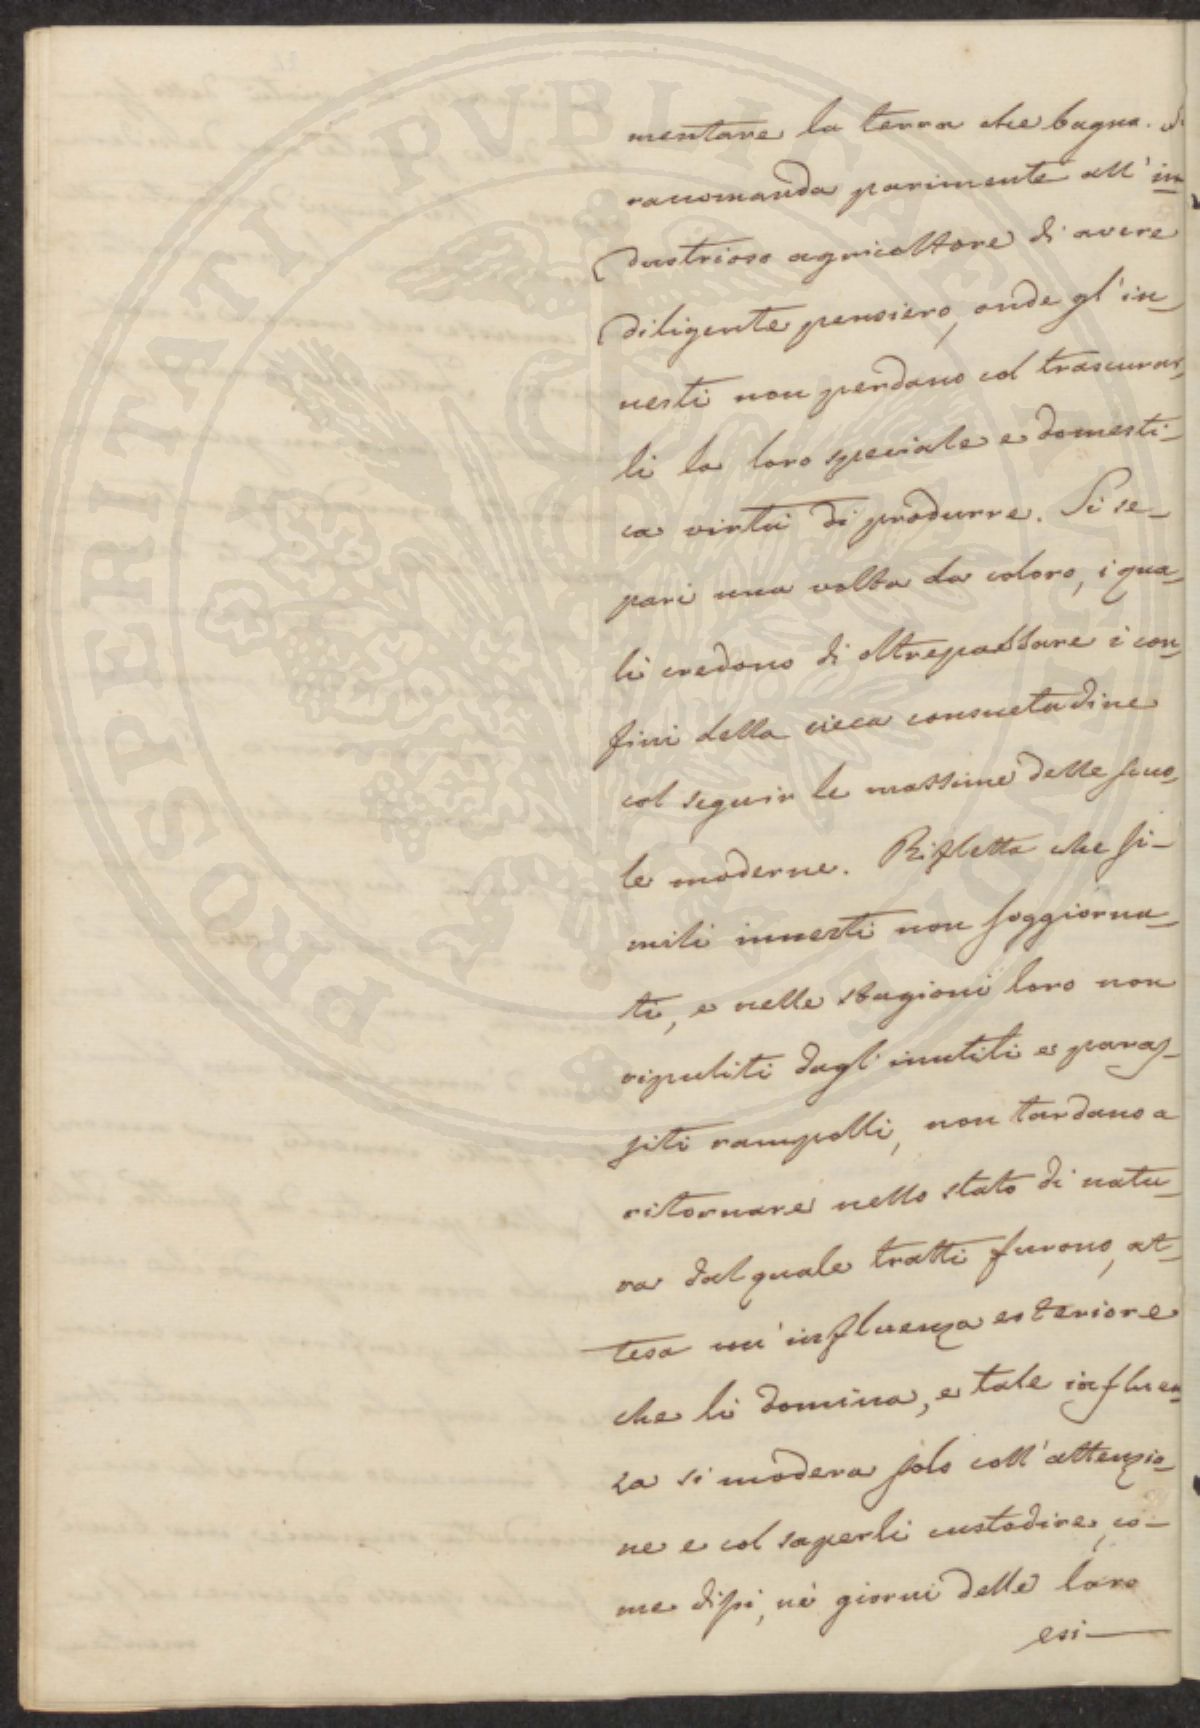 PROSPERITATI PUBLICAE AUGENDAE
mentare la terra che bagna. Si
raccomanda parimente all'in
dustrioso agricoltore di avere
diligente pensiero, onde gl'in-
nesti non perdano col trascurar-
li la loro speciale e domesti-
ca virtù di produrre. Si se-
pari una volta da coloro, i qua-
li credono di oltrepassare i con-
fini della cieca consuetudine
col seguir le massime delle scuo-
le moderne. Rifletta che si-
mili innesti non soggiorna-
ti, e nelle stagioni loro non
ripuliti dagl'inutili e paras-
siti rampolli, non tardano a
ritornare nello stato di natu-
ra dal quale tratti furono, at-
tesa un'influenza esteriore
che li domina, e tale influen-
za si modera solo coll'attenzio-
ne e col saperli custodire, co-
me dissi, nè giorni delle loro
esi-